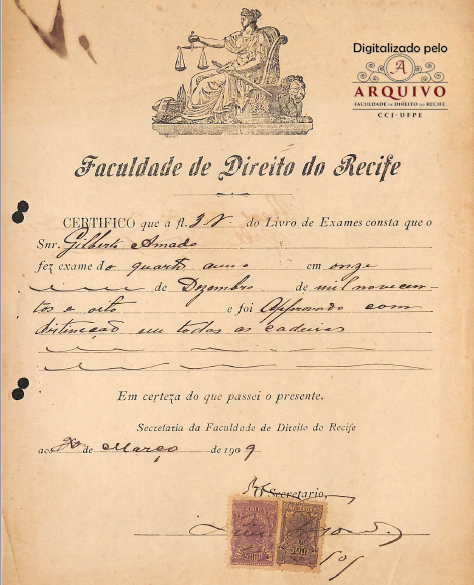 Digitalizado pelo
A
ARQUIVO
FACULDADE DE DIREITO DO RECIFE
CCJ-UFPE
Faculdade de Direito do Recife
CERTIFICO que a fl. 3 V. do Livro de Exames consta que o
Snr. Gilberto Amado
fez exame do quarto anno em onze
de Dezembro de mil novecen-
tos e oito e foi Approvado com
distincção em todas as cadeiras
Em certeza do que passei o presente.
Secretaria da Faculdade de Direito do Recife
ao de Março de 1909
Secretario,